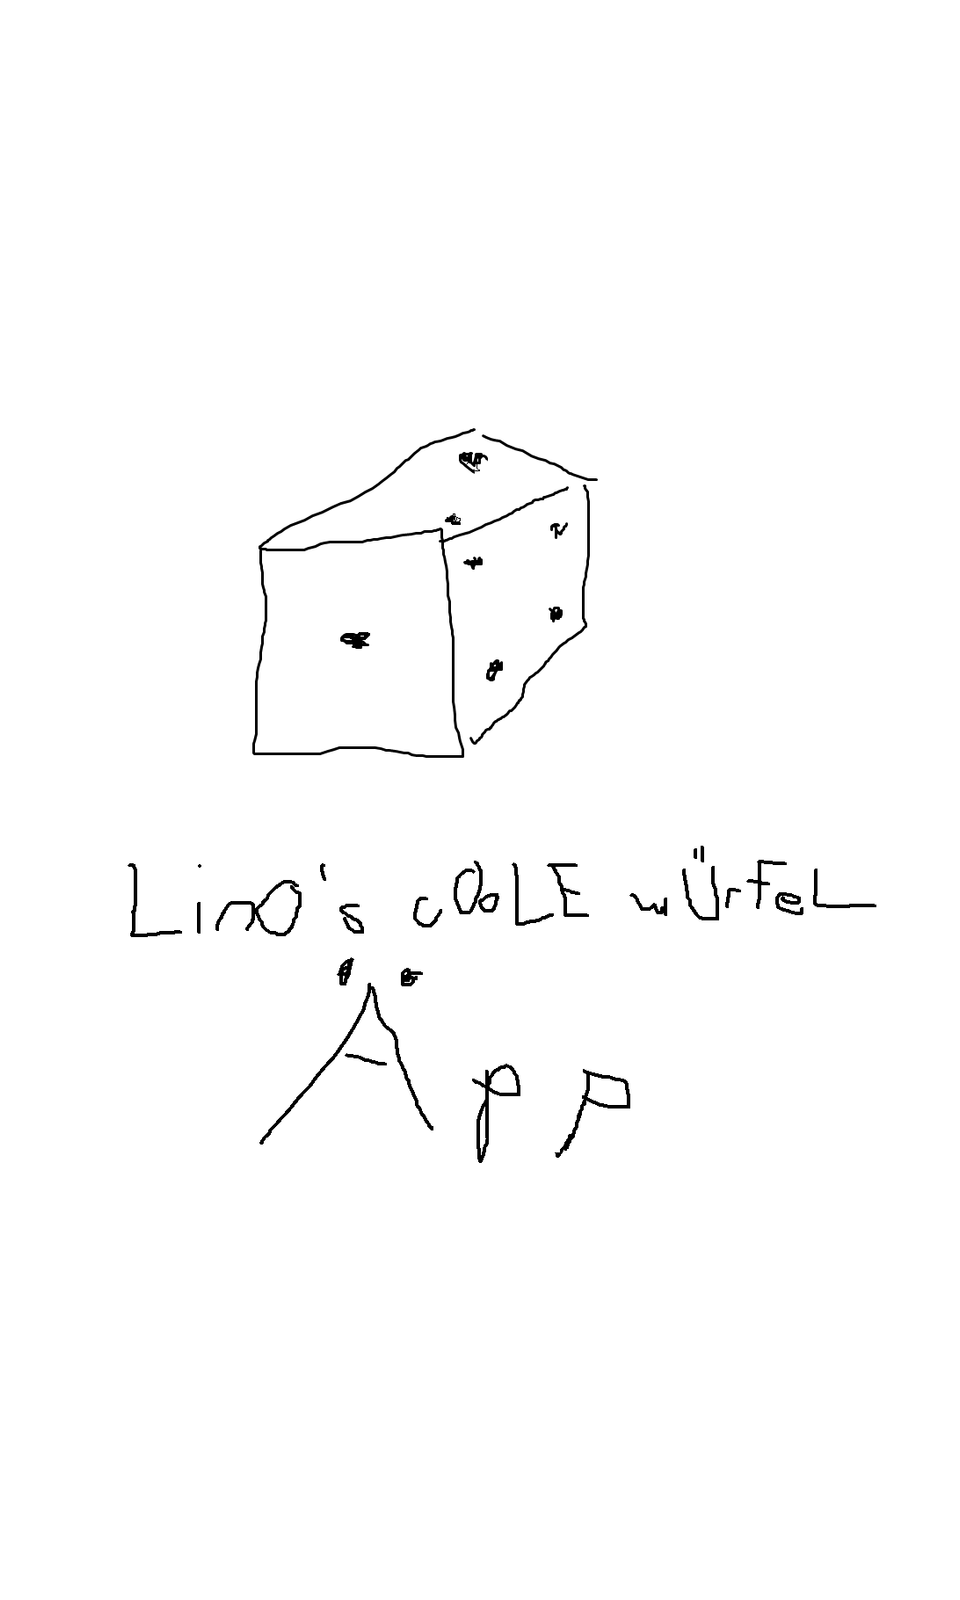 Lino's cooLE wÜrFeL
Äpp